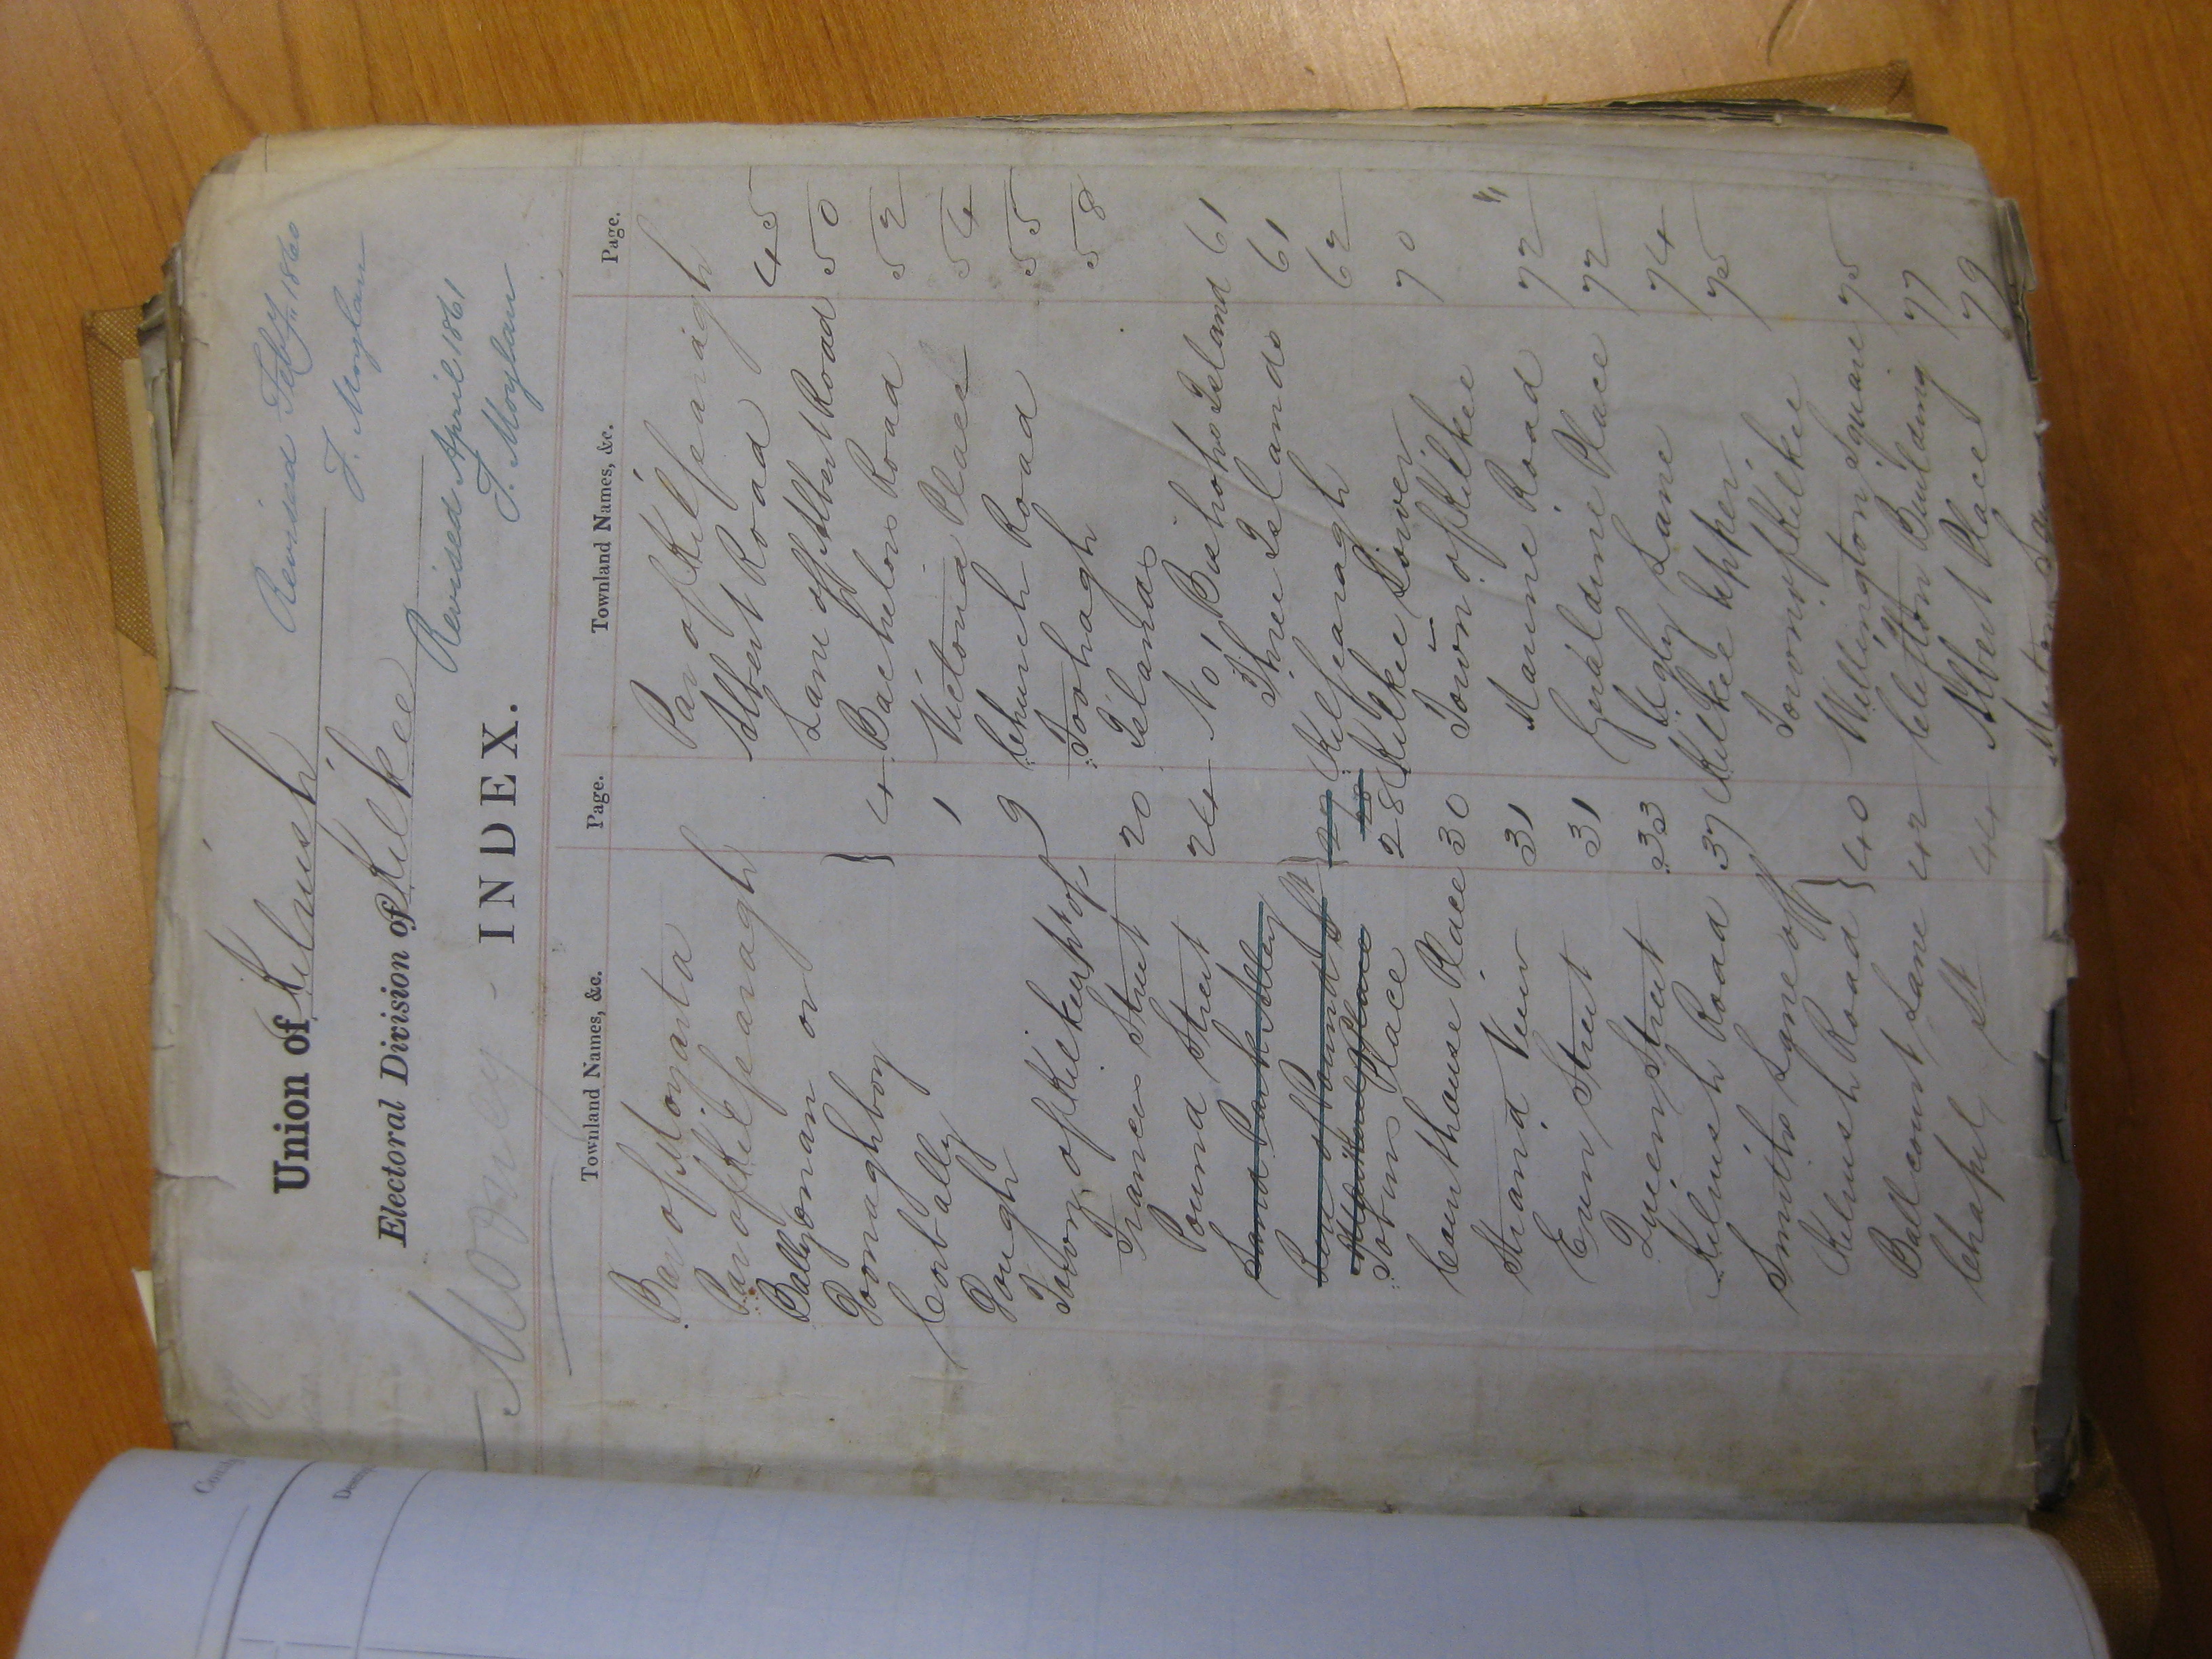 Union of Kilrush
Revised Feby 1860
F. Moylan
Electoral Division of Kilkee
Revised April 1861
F. Moylan
INDEX.
Mooney
Townland Names, &c. Page.
Bar of Moyarta
Par of Kilfearagh
Ballyonan or
Goonaghboy } 4
Corbally 1
Gough 9
Town of Kilkee pt of
Frances Street 20
Pound Street 24
Sand Park Alley
Rere of Pound St } 27
Market Place 28
Tobins Place 28
Courthouse Place 30
Strand View 31
Erin Street 31
Queen Street 33
Kilrush Road 37
Smiths Lane off
Kilrush Road } 40
Ball court Lane 42
Chapel St 44
Townland Names, &c. Page.
Par of Kilfearagh
Albert Road 45
Lane off Albert Road 50
Bachelors Road 52
Victoria Place 54
Church Road 55
Foohagh 58
Islands
No. 1 Bishops Island 61
Three Islands 61
Kilfearagh 62
Kilkee Lower
Town of Kilkee 70
Marine Road 72 "
Geraldine Place 72
Ugly Lane 74
Kilkee Upper 75
Town of Kilkee
Wellington Square 75
Clifton Building 77
Albert Place 79